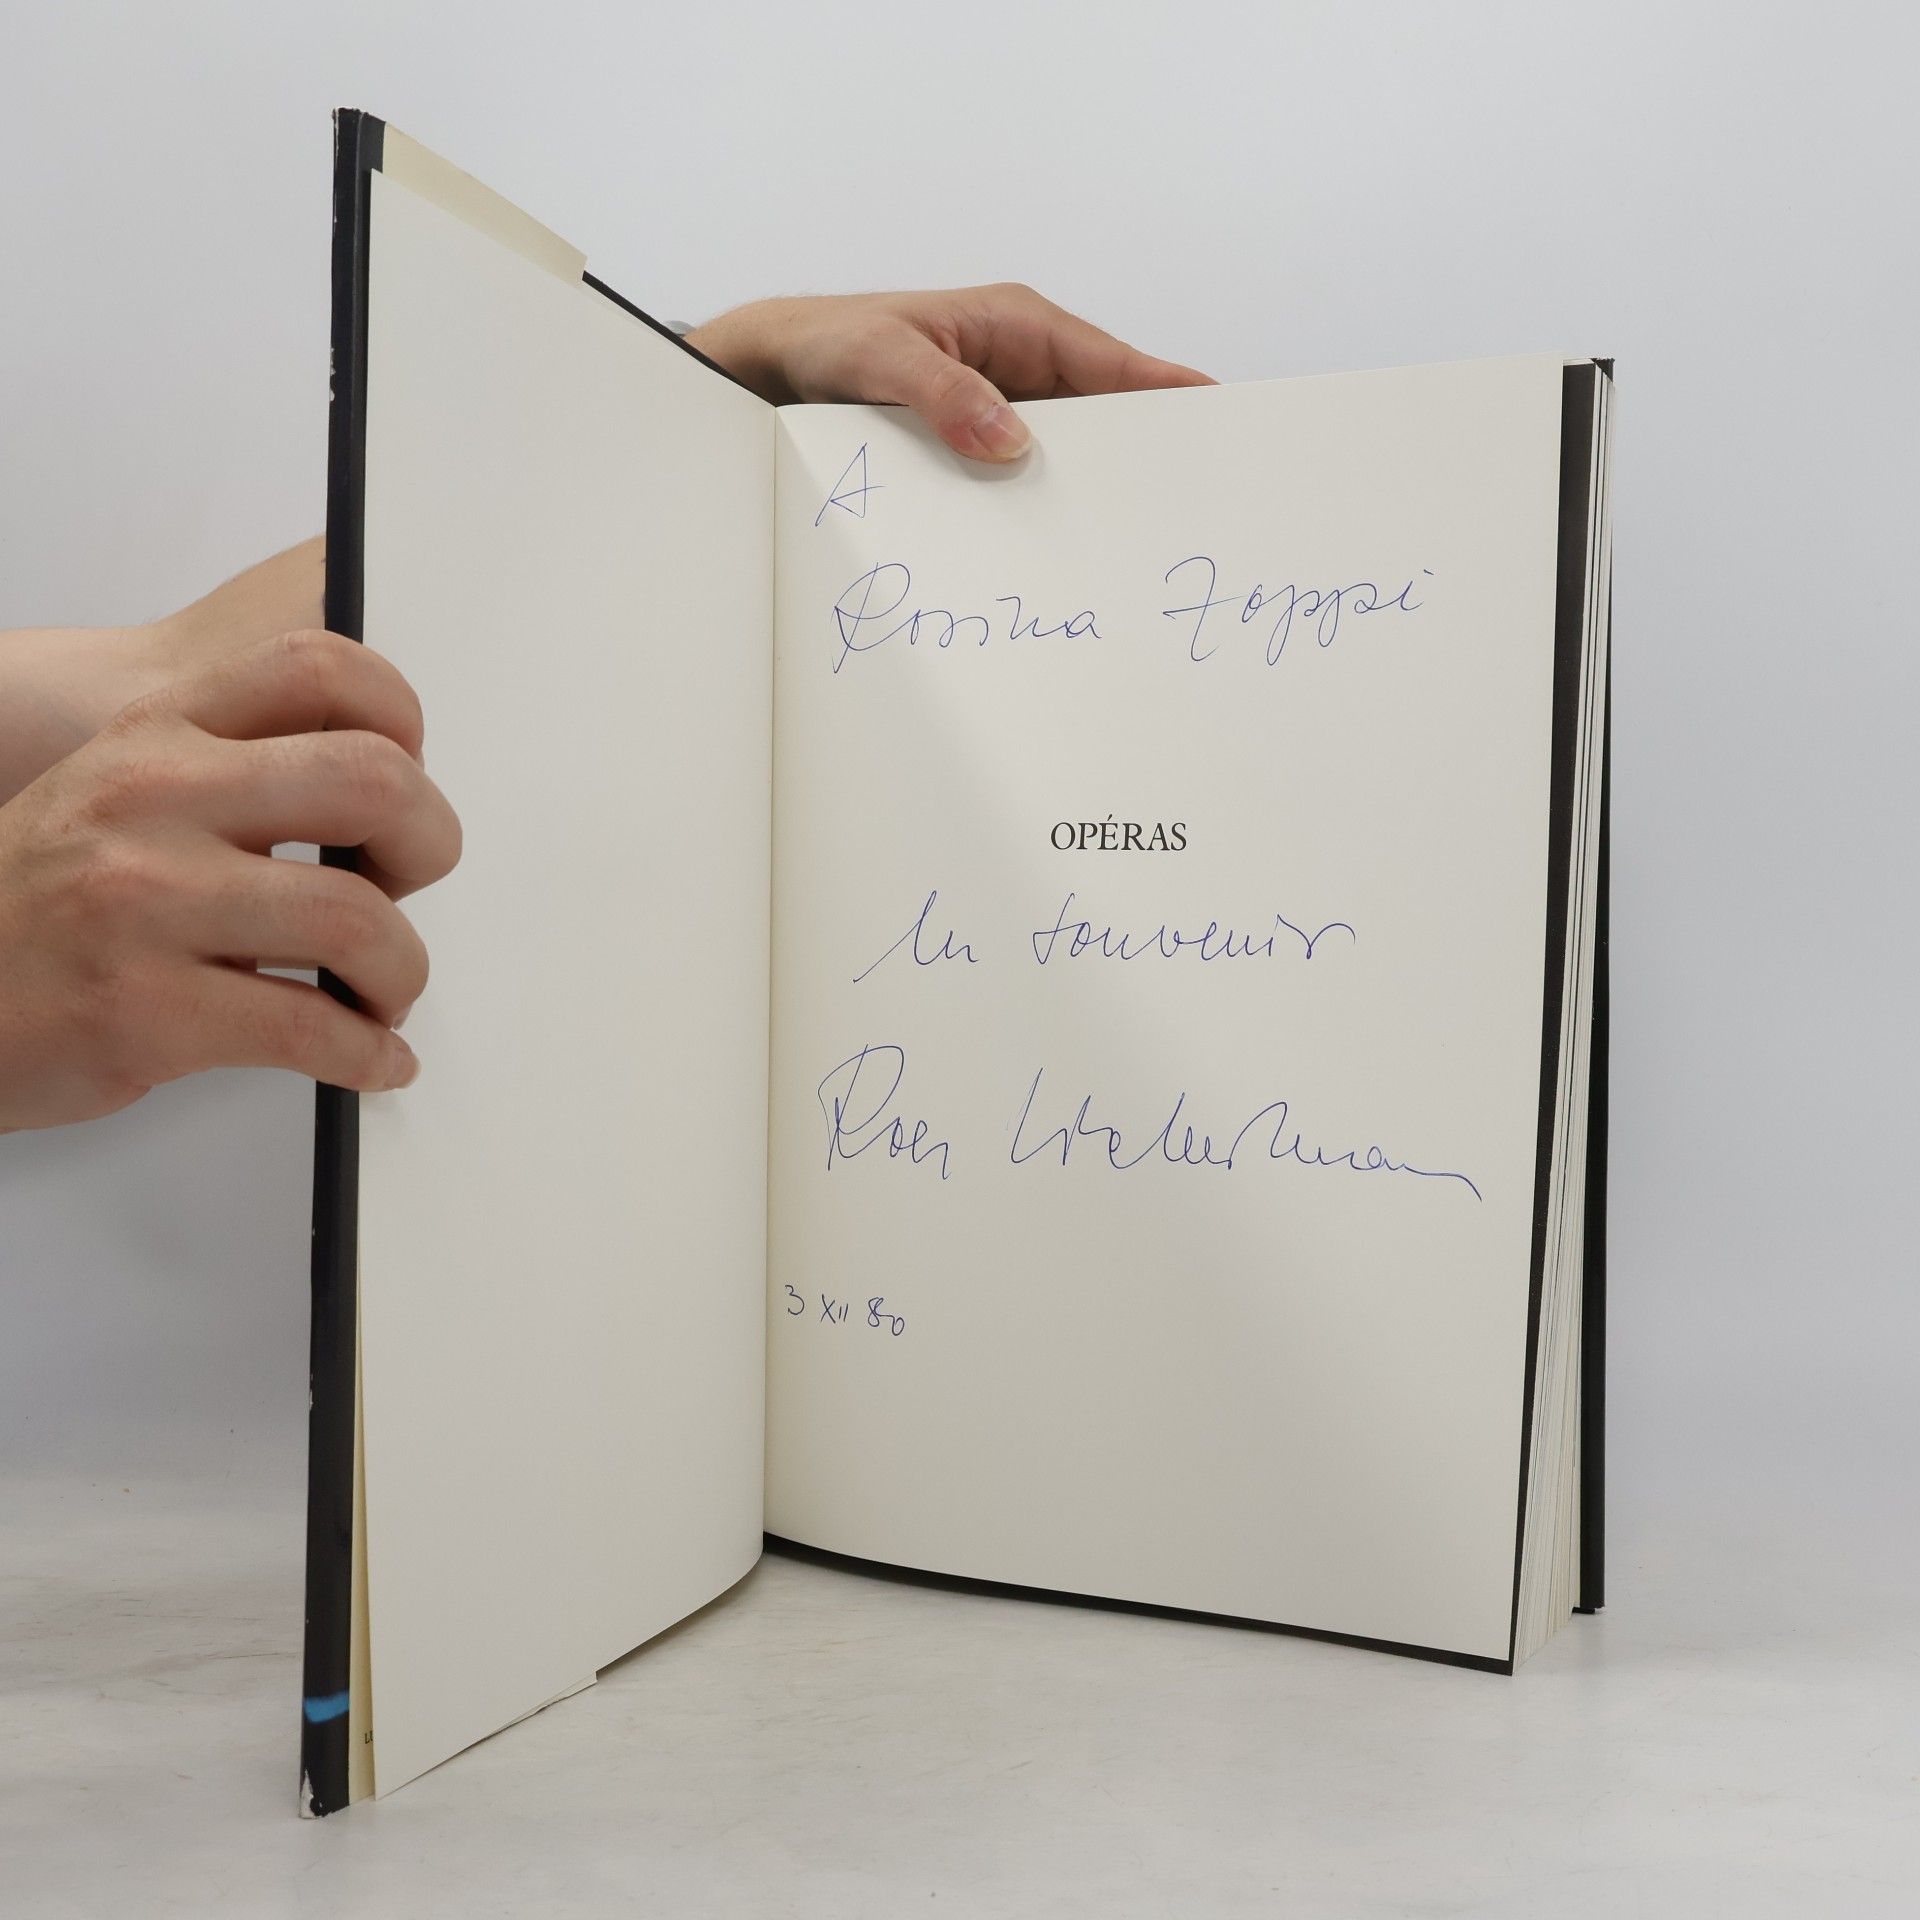 A
Rosina Zoppi
OPÉRAS
En souvenir
Rolf Liebermann
3 XII 80